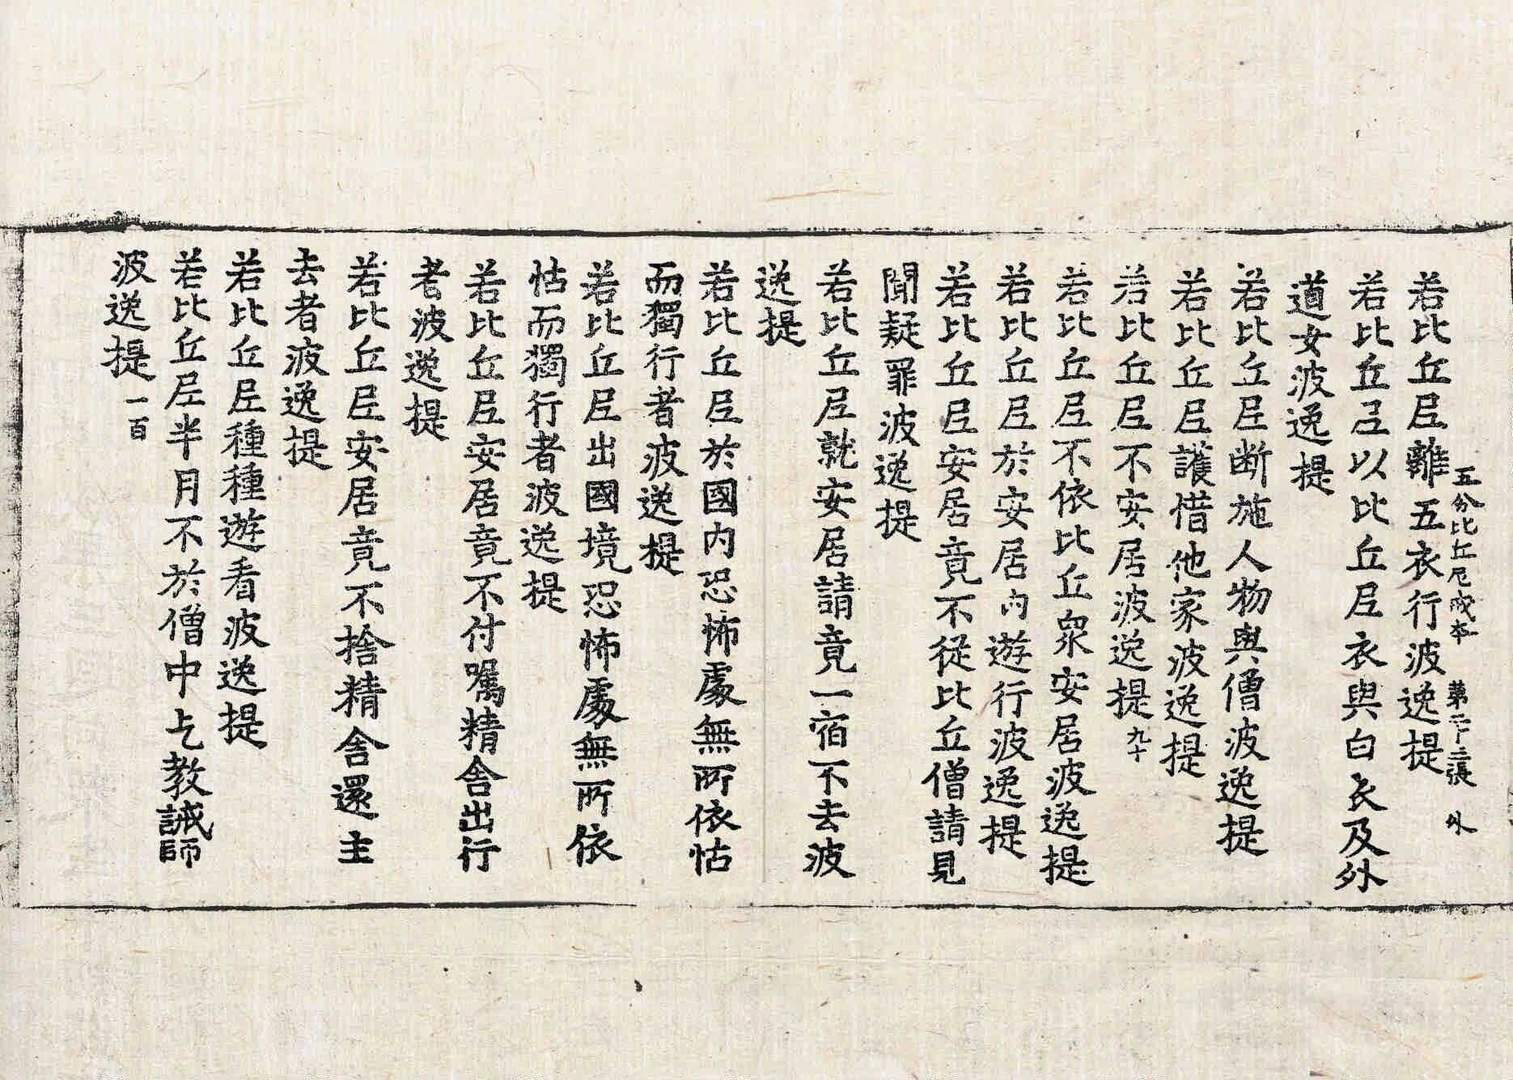 五分比丘尼戒本 第二十三張 外
若比丘尼離五衣行波逸提
若比丘尼以比丘尼衣與白衣及外
道女波逸提
若比丘尼断施人物與僧波逸提
若比丘尼護惜他家波逸提
若比丘尼不安居波逸提九十
若比丘尼不依比丘衆安居波逸提
若比丘尼於安居內遊行波逸提
若比丘尼安居竟不從比丘僧請見
聞疑罪波逸提
若比丘尼就安居請竟一宿不去波
逸提
若比丘尼於國內恐怖處無所依怙
而獨行者波逸提
若比丘尼出國境恐怖處無所依
怙而獨行者波逸提
若比丘尼安居竟不付囑精舍出行
者波逸提
若比丘尼安居竟不捨精舍還主
去者波逸提
若比丘尼種種遊看波逸提
若比丘尼半月不於僧中乞教誡師
波逸提一百